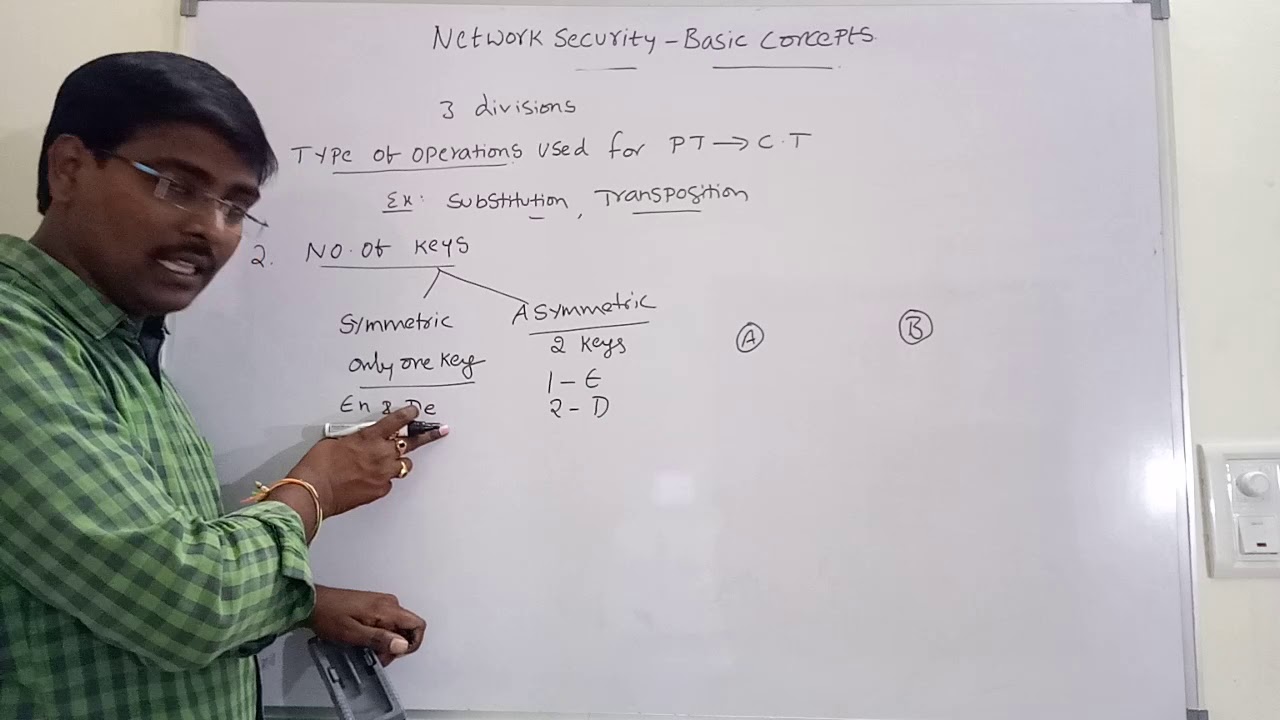 Network Security - Basic Concepts
3 divisions
Type of operations used for PT → C.T
Ex: Substitution, Transposition
2. No. of keys
Symmetric
Asymmetric
only one key
2 keys
En & De
1 - E
2 - D
A
B